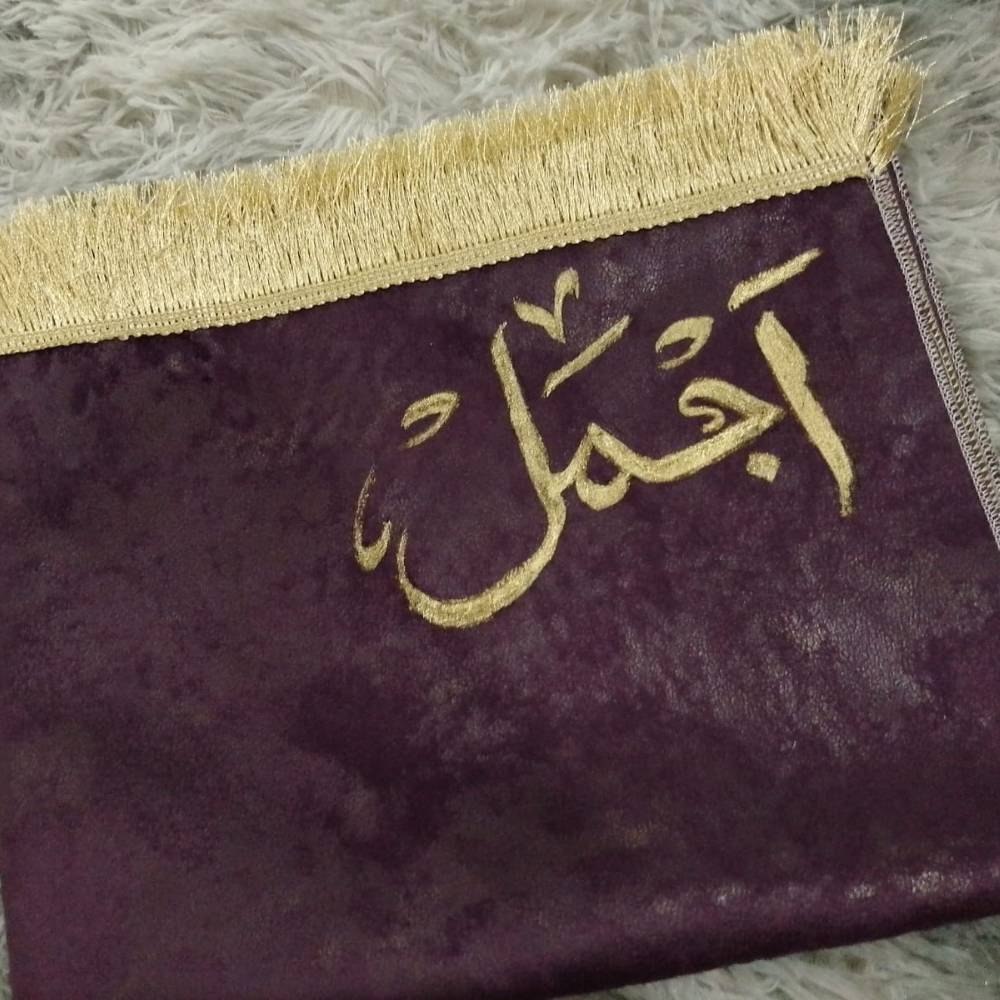 أجمل